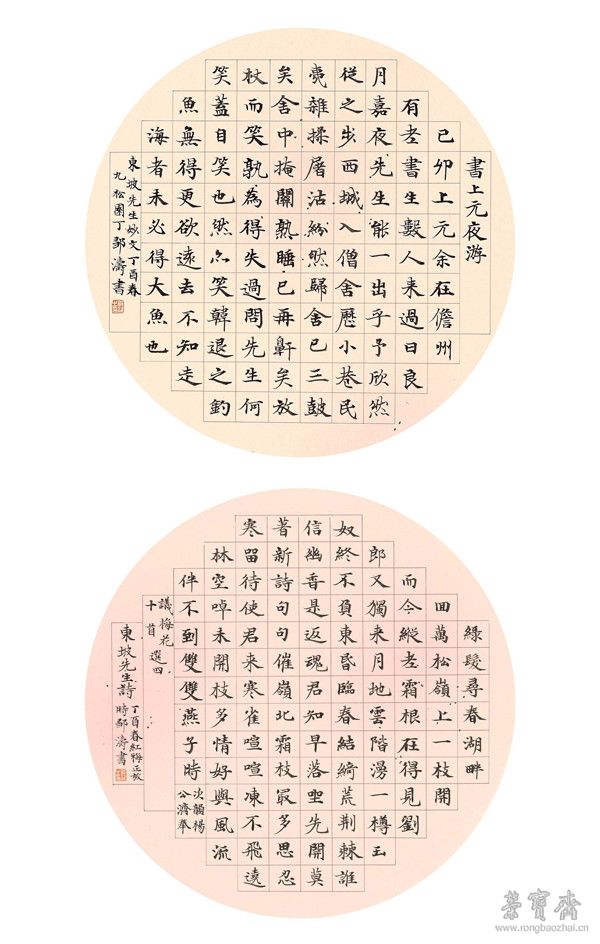 書上元夜游
己卯上元余在儋州
有老書生數人来過曰良
月嘉夜先生能一出乎予欣然
從之步西城入僧舍歷小巷民
夷雜揉屠沽紛然歸舍已三鼓
矣舍中掩關熟睡已再鼾矣放
杖而笑孰為得失過問先生何
笑蓋自笑也然亦笑韓退之釣
魚無得更欲遠去不知走
海者未必得大魚也
東坡先生妙文丁酉春
九松園丁鄒濤書
綠髮尋春湖畔
回萬松嶺上一枝開
而今縱老霜根在得見劉
郎又獨来月地雲階漫一樽玉
奴終不負東昏臨春結綺荒荆棘誰
信幽香是返魂君知早落坐先開莫
著新詩句句催嶺北霜枝最多思忍
寒留待使君来寒雀喧喧凍不飛遶
林空啅未開枝多情好與風流
伴不到雙雙燕子時
次韻楊
公濟奉
議梅花
十首 選四
東坡先生詩
丁酉春紅梅正放
時鄒濤書
榮寶齋
www.rongbaozhai.cn